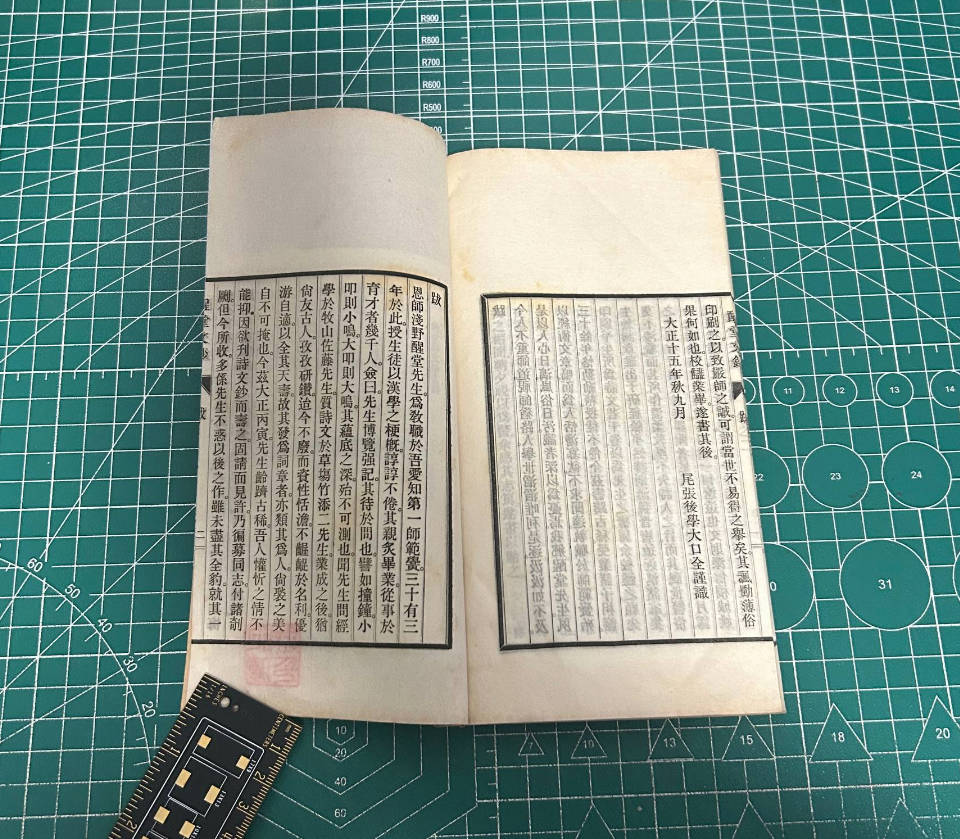 醒堂文鈔 跋
印刷之。以致嚴師之誠。可謂當世不易得之擧矣。其諷勸薄俗
果何如也。校讎業畢。遂書其後。
大正十五年秋九月 尾張後學大口全謹識
跋
恩師淺野醒堂先生。爲敎職於吾愛知第一師範黌。三十有三
年於此。授生徒以漢學之梗槪。諄諄不倦。其親炙畢業。從事於
育才者幾千人。僉曰。先生博覽强記。其待於問也。譬如撞鐘。小
叩則小鳴。大叩則大鳴。其蘊底之深。殆不可測也。聞先生問經
學於牧山佐藤先生。質詩文於草塲竹添二先生。業成之後。猶
尙友古人。孜孜硏鑽。迨今不廢。而資性恬澹。不齷齪於名利。優
游自適。以全其天壽。故其發爲詞章者。亦類其爲人。尙褧之美
自不可掩也。今茲大正丙寅。先生齡躋古稀。吾人憧忻之情。不
能抑。因欲刋詩文鈔而壽之。固請而見許。乃徧募同志。付諸剞
劂。但今所收。多係先生不惑以後之作。雖未盡其全豹。就其一
醒堂文鈔 跋 二
R900
R800
R700
R600
R500
11
12
13
22
23
24
31
60
50
40
20
10
20
40
60
7
10
13
15
18
20
INCHES
CENTIMETERS
1
2
3